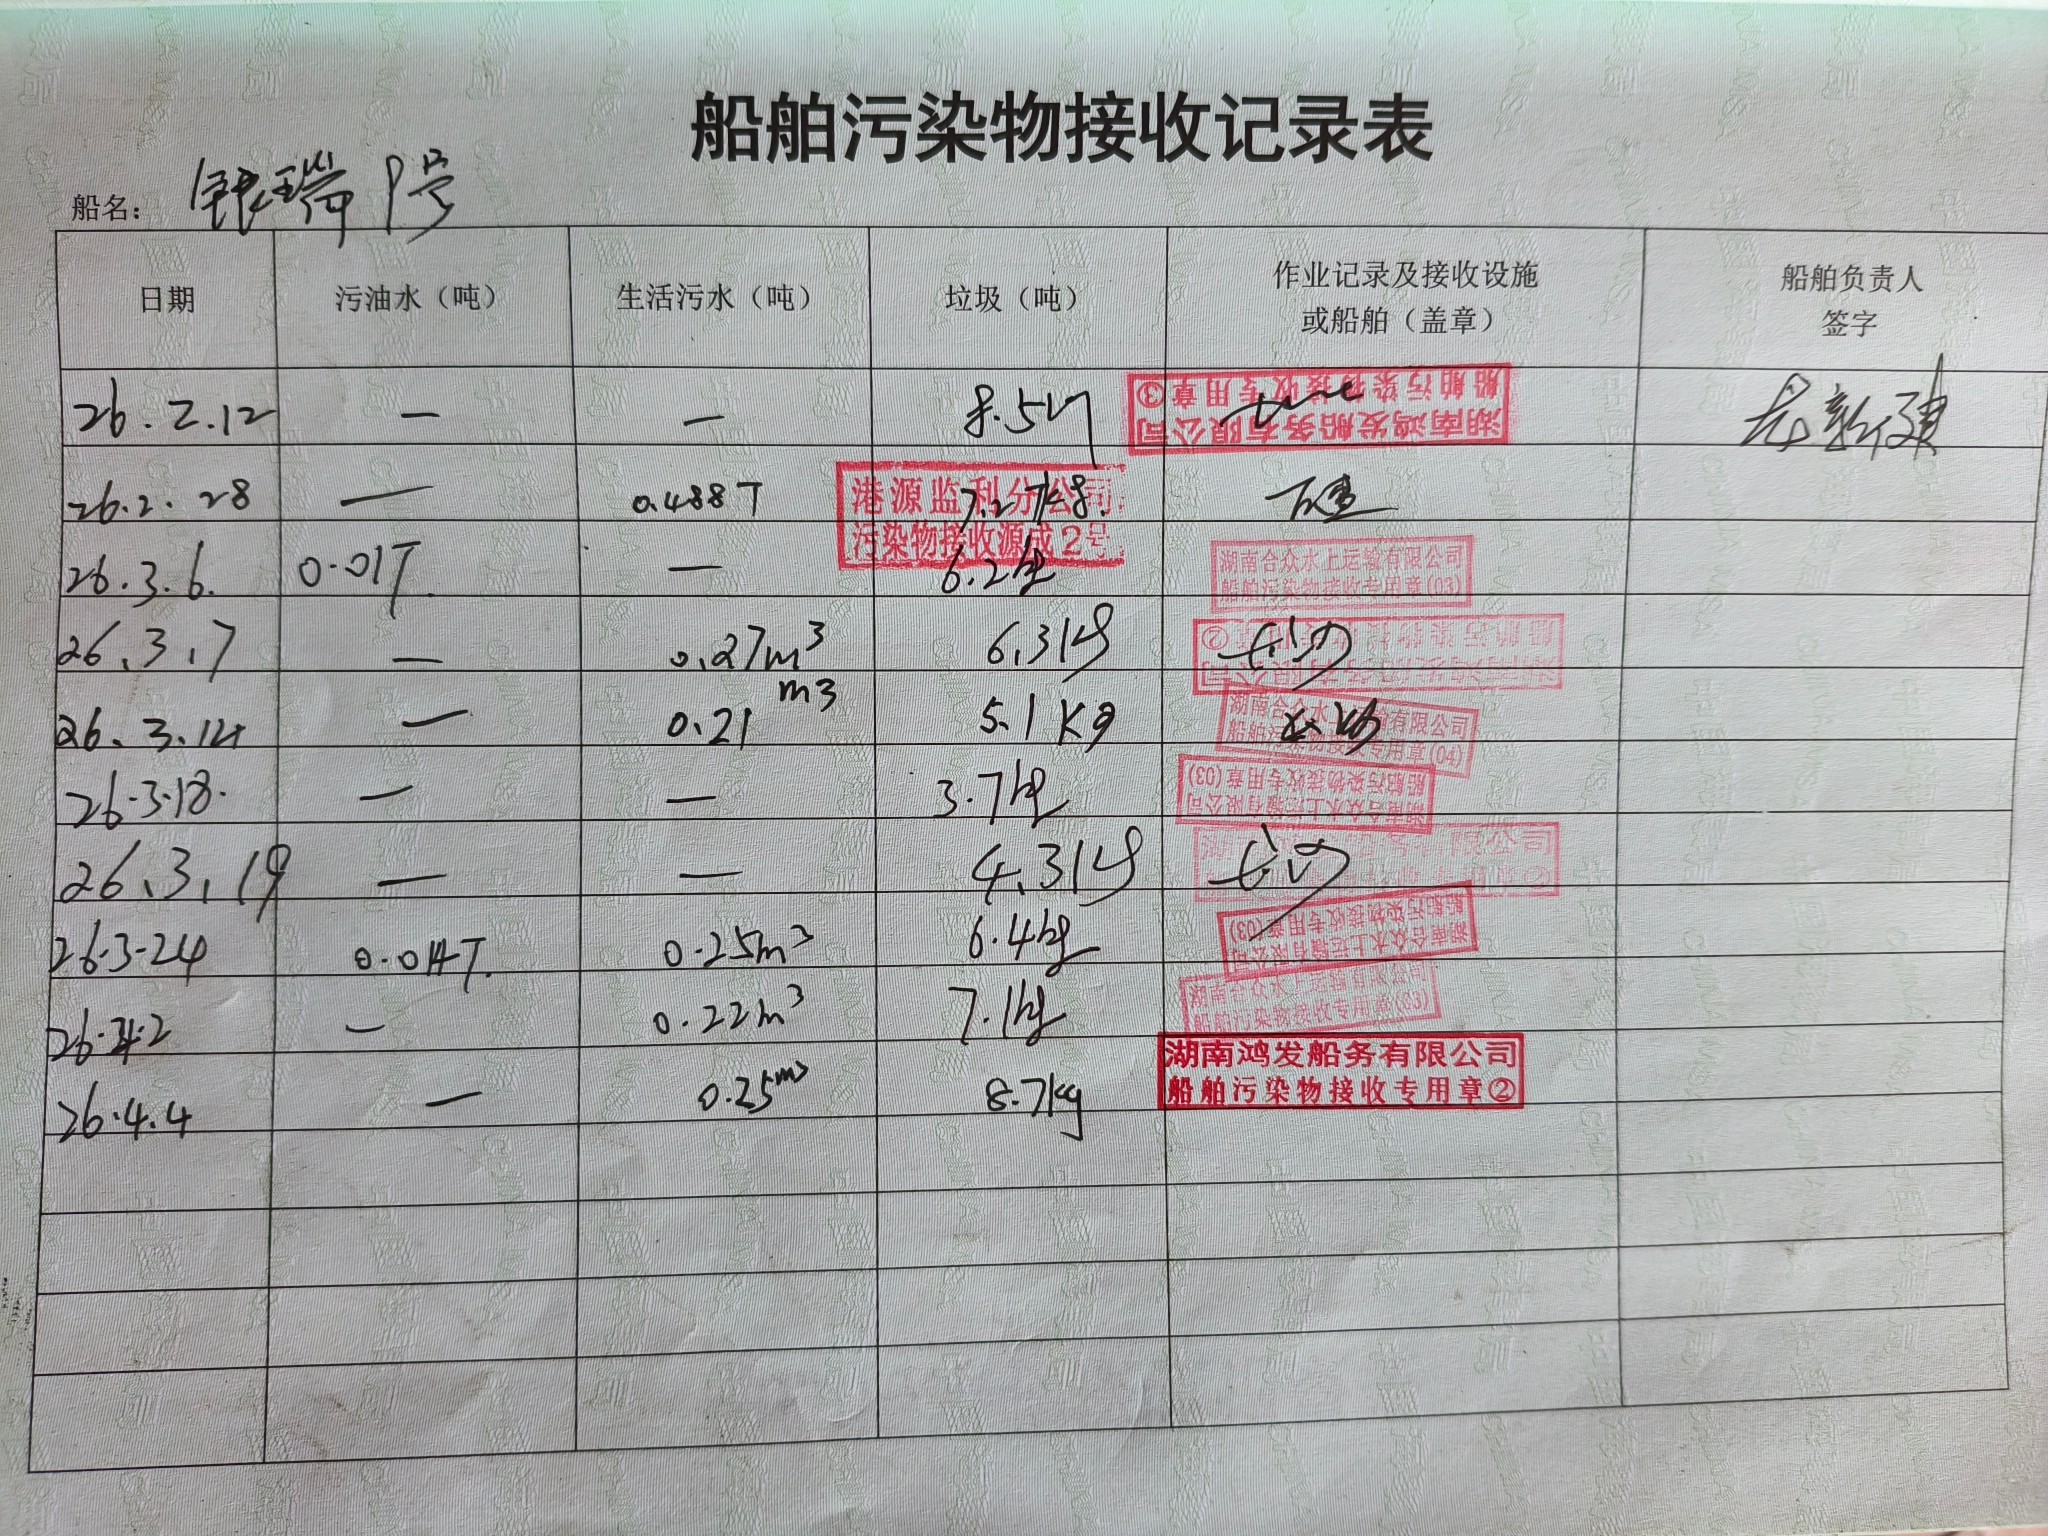 船舶污染物接收记录表
船名：银瑞1号
日期 污油水（吨） 生活污水（吨） 垃圾（吨） 作业记录及接收设施或船舶（盖章） 船舶负责人签字
26.2.12 — — 8.5 湖南鸿发船务有限公司 船舶污染物接收专用章③
26.2.28 — 0.488T 7.2kg 港源监利分公司 污染物接收源成2号
26.3.6. 0.01T. — 6.2kg 湖南合众水上运输有限公司 船舶污染物接收专用章(03)
26.3.7 — 0.27m3 6.3kg ②
26.3.14 — 0.21 m3 5.1Kg 湖南合众水上运输有限公司 船舶污染物接收专用章(04)
26.3.18. — — 3.7kg 湖南合众水上运输有限公司 船舶污染物接收专用章(03)
26.3.19 — — 4.3kg
26.3-24 0.014T. 0.25m3 6.4kg 湖南合众水上运输有限公司 船舶污染物接收专用章(03)
26.4.2 — 0.22m3 7.1kg 湖南合众水上运输有限公司 船舶污染物接收专用章(03)
26.4.4 — 0.25m3 8.7kg 湖南鸿发船务有限公司 船舶污染物接收专用章②